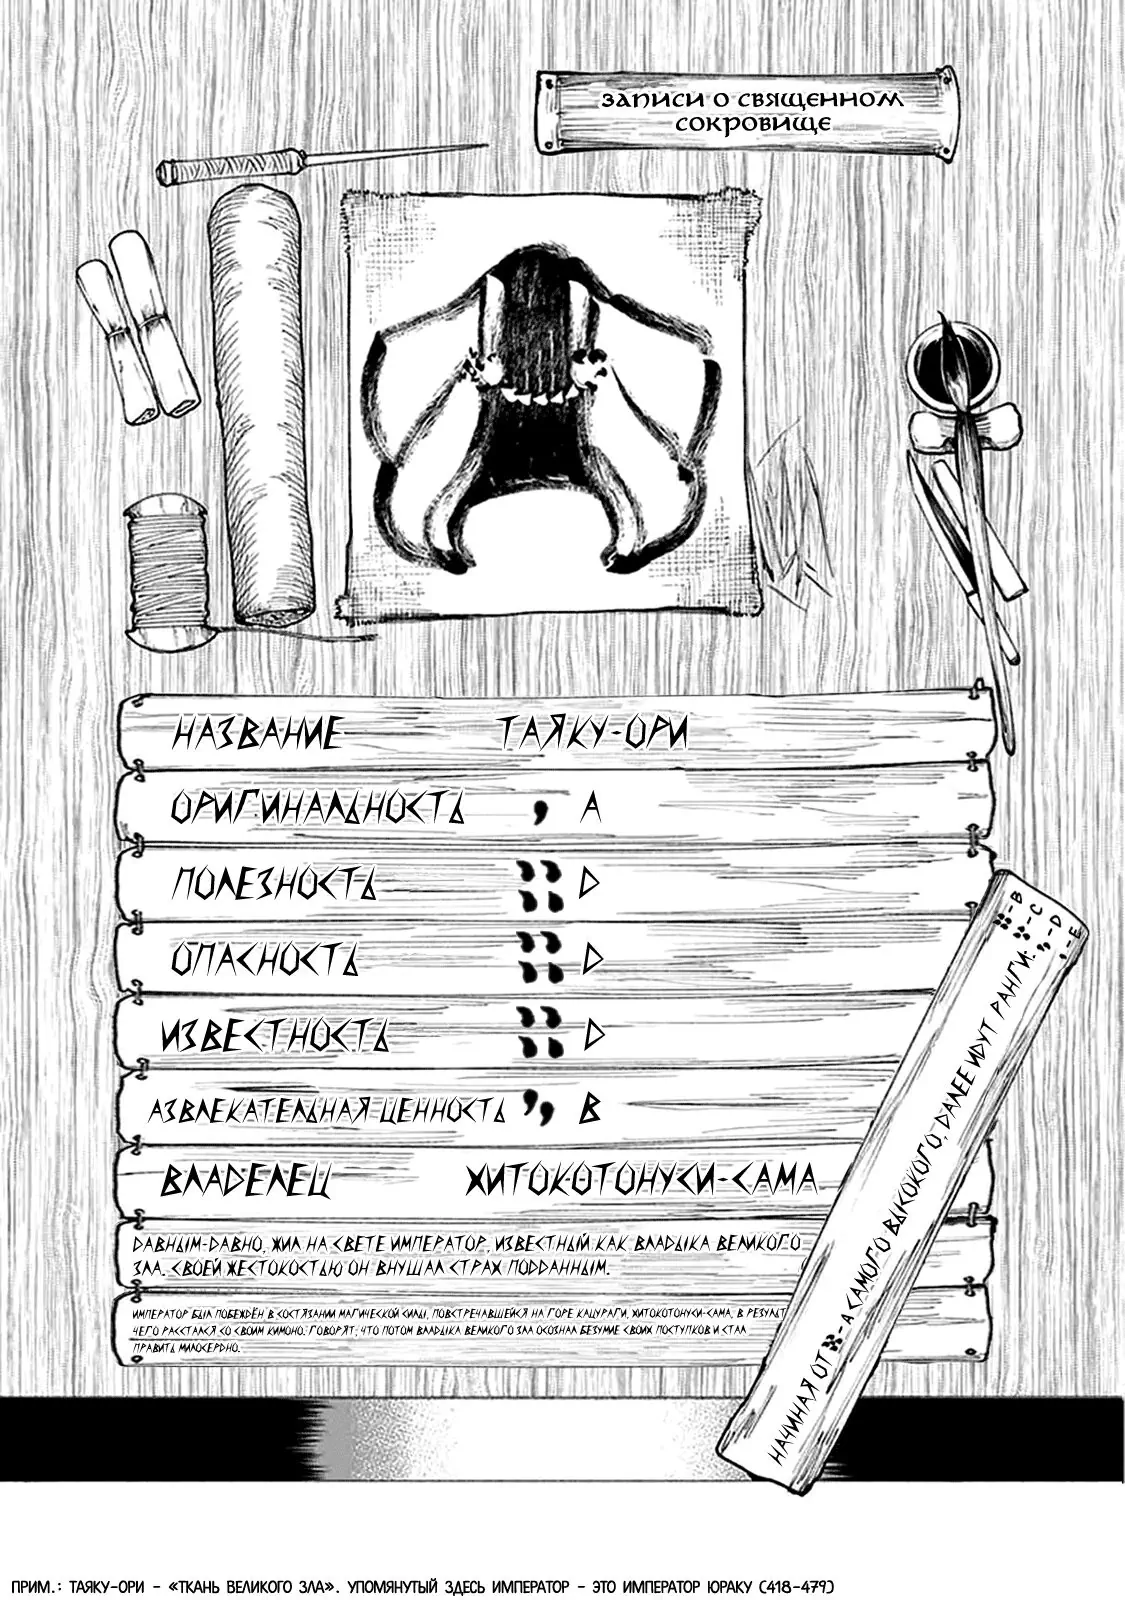 ЗАПИСИ О СВЯЩЕННОМ
СОКРОВИЩЕ
НАЗВАНИЕ ТАЯКУ-ОРИ
ОРИГИНАЛЬНОСТЬ , A
ПОЛЕЗНОСТЬ D
ОПАСНОСТЬ D
ИЗВЕСТНОСТЬ D
АЗВЛЕКАТЕЛЬНАЯ ЦЕННОСТЬ ,, B
ВЛАДЕЛЕЦ ХИТОКОТОНУСИ-САМА
ДАВНЫМ-ДАВНО, ЖИЛ НА СВЕТЕ ИМПЕРАТОР, ИЗВЕСТНЫЙ КАК ВЛАДЫКА ВЕЛИКОГО
ЗЛА. СВОЕЙ ЖЕСТОКОСТЬЮ ОН ВНУШАЛ СТРАХ ПОДДАННЫМ.
ИМПЕРАТОР БЫЛ ПОБЕЖДЁН В СОСТЯЗАНИИ МАГИЧЕСКОЙ СИЛЫ, ПОВСТРЕЧАВШЕЙСЯ НА ГОРЕ КАЦУРАГИ, ХИТОКОТОНУСИ-САМА, В РЕЗУЛЬТ
ЧЕГО РАССТАЛСЯ СО СВОИМ КИМОНО. ГОВОРЯТ, ЧТО ПОТОМ ВЛАДЫКА ВЕЛИКОГО ЗЛА ОСОЗНАЛ БЕЗУМИЕ СВОИХ ПОСТУПКОВ И СТАЛ
ПРАВИТЬ МИЛОСЕРДНО.
НАЧИНАЯ ОТ - A САМОГО ВЫСОКОГО, ДАЛЕЕ ИДУТ РАНГИ:
- B
- C
- D
- E
ПРИМ.: ТАЯКУ-ОРИ - «ТКАНЬ ВЕЛИКОГО ЗЛА». УПОМЯНУТЫЙ ЗДЕСЬ ИМПЕРАТОР - ЭТО ИМПЕРАТОР ЮРАКУ (418-479)